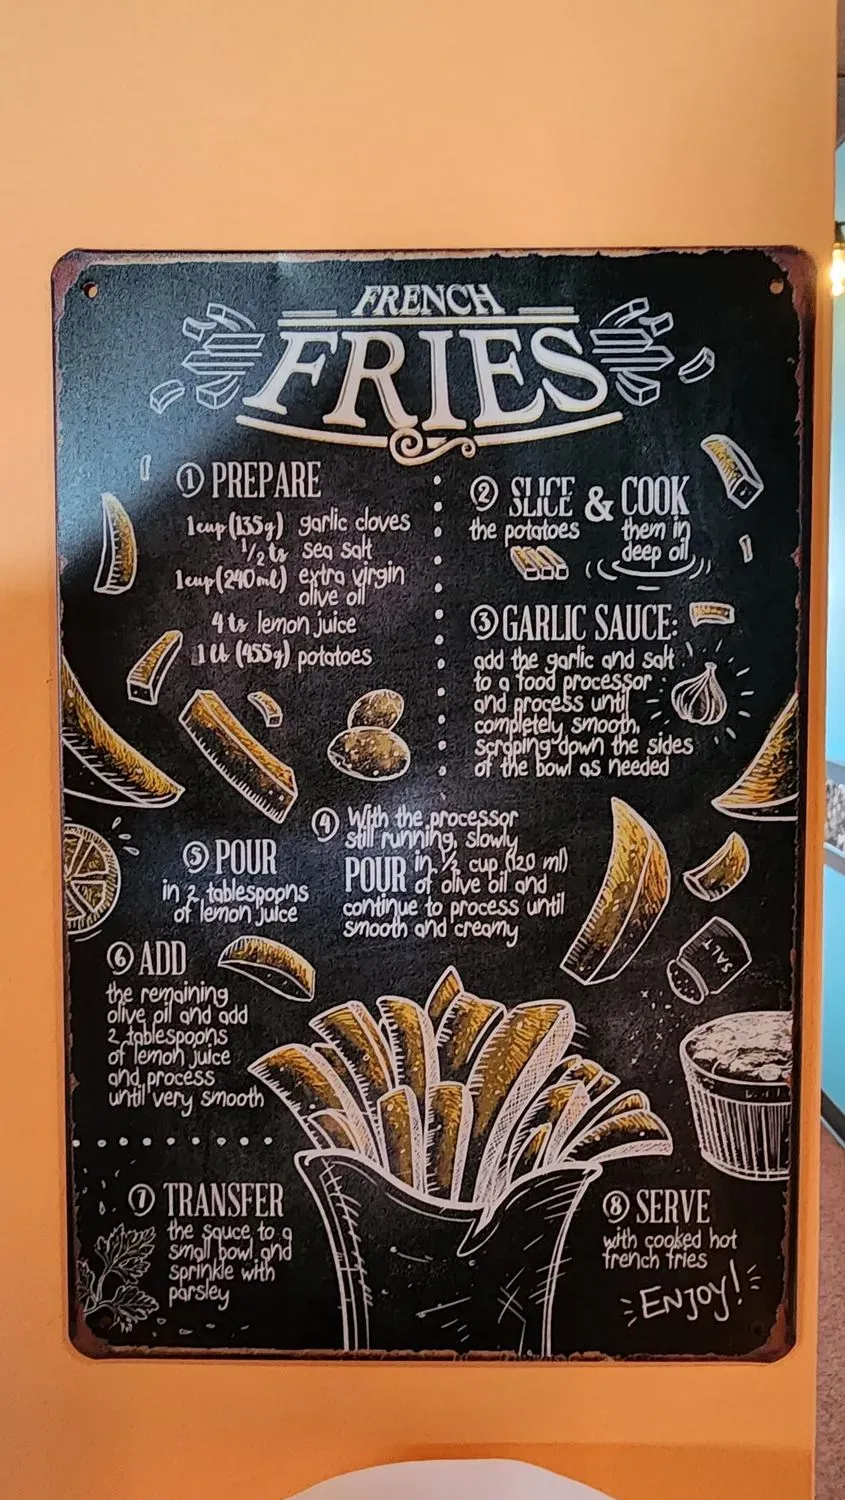 FRENCH
FRIES
1 PREPARE
1 cup (135g) garlic cloves
1/2 ts sea salt
1 cup (240 ml) extra virgin
olive oil
4 ts lemon juice
1 lb (455g) potatoes
2 SLICE & COOK
the potatoes them in
deep oil
3 GARLIC SAUCE:
add the garlic and salt
to a food processor
and process until
completely smooth,
scraping down the sides
of the bowl as needed
4 With the processor
still running, slowly
POUR in 1/2 cup (120 ml)
of olive oil and
continue to process until
smooth and creamy
5 POUR
in 2 tablespoons
of lemon juice
6 ADD
the remaining
olive oil and add
2 tablespoons
of lemon juice
and process
until very smooth
SALT
7 TRANSFER
the sauce to a
small bowl and
sprinkle with
parsley
8 SERVE
with cooked hot
french fries
ENJOY!